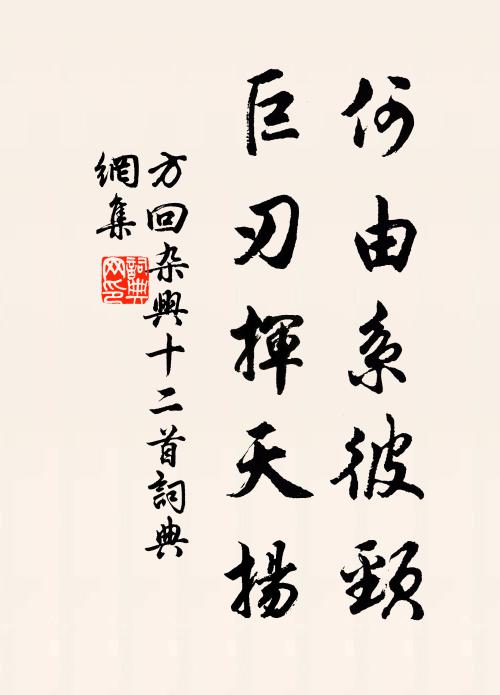 何由系彼頸
巨刃揮天揚
方回杂興十二首詞典
網集
詞典
网印